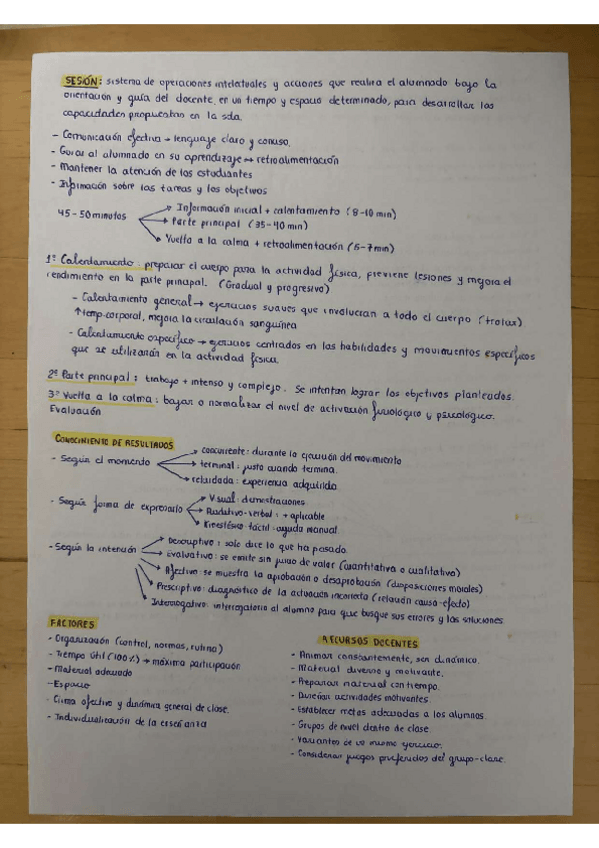 SESIÓN: sistema de operaciones intelectuales y acciones que realiza el alumnado bajo la
orientación y guía del docente, en un tiempo y espacio determinado, para desarrollar las
capacidades propuestas en la sda.
- Comunicación efectiva → lenguaje claro y conciso.
- Guiar al alumnado en su aprendizaje → retroalimentación
- Mantener la atención de los estudiantes
- Información sobre las tareas y los objetivos
45-50 minutos
Información inicial + calentamiento (8-10 min)
Parte principal (35-40 min)
Vuelta a la calma + retroalimentación (5-7 min)
1º Calentamiento: preparar el cuerpo para la actividad física, previene lesiones y mejora el
rendimiento en la parte principal. (Gradual y progresivo)
- Calentamiento general → ejercicios suaves que involucran a todo el cuerpo (trotar)
↑temp. corporal, mejora la circulación sanguínea
- Calentamiento específico → ejercicios centrados en las habilidades y movimientos específicos
que se utilizarán en la actividad física.
2º Parte principal: trabajo + intenso y complejo. Se intentan lograr los objetivos planteados.
3º Vuelta a la calma: bajar o normalizar el nivel de activación fisiológico y psicológico.
Evaluación
CONOCIMIENTO DE RESULTADOS
- Según el momento
concurrente: durante la ejecución del movimiento
terminal: justo cuando termina.
retardada: experiencia adquirida.
- Según forma de expresarlo
Visual: demostraciones
Auditivo-verbal: + aplicable
Kinestésico táctil: ayuda manual
- Según la intención
Descriptivo: solo dice lo que ha pasado.
Evaluativo: se emite sin juicio de valor (cuantitativa o cualitativa)
Afectivo: se muestra la aprobación o desaprobación (disposiciones morales)
Prescriptivo: diagnóstico de la actuación incorrecta (relación causa-efecto)
Interrogativo: interrogatorio al alumno para que busque sus errores y las soluciones
FACTORES
- Organización (control, normas, rutina)
- Tiempo útil (100%) → máxima participación
- Material adecuado
- Espacio
- Clima afectivo y dinámica general de clase.
- Individualización de la enseñanza
RECURSOS DOCENTES
- Animar constantemente, ser dinámico.
- Material diverso y motivante.
- Preparar material con tiempo.
- Diseñar actividades motivantes
- Establecer metas adecuadas a los alumnos.
- Grupos de nivel dentro de clase
- Variantes de un mismo ejercicio.
- Considerar juegos preferidos del grupo-clase.